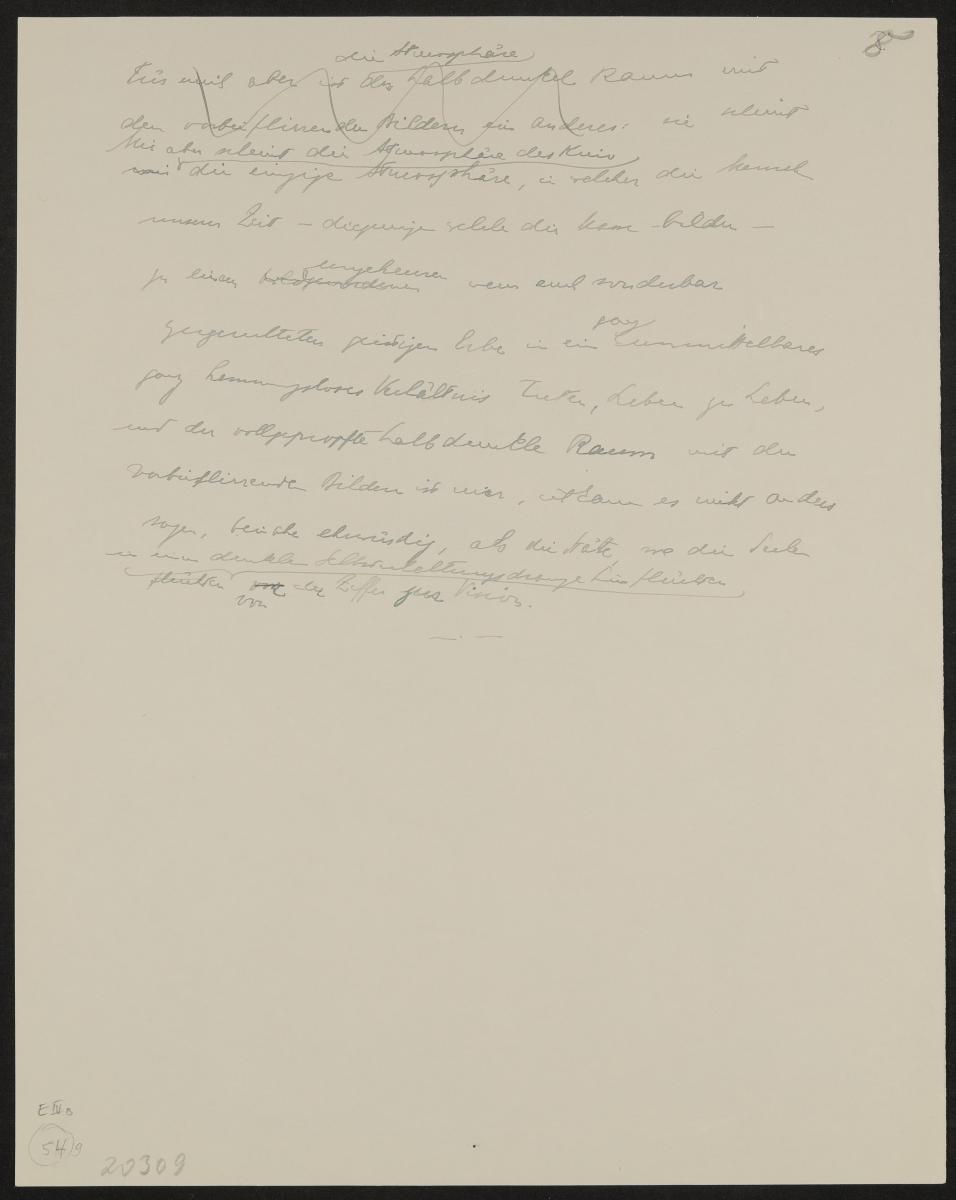 8
die Atmosphäre
Für mich aber ist der halbdunkel Raum mit
den vorbeiflirrenden Bildern ein anderes: sie scheint
Mir aber scheint die Atmosphäre des Kino
mir die einzige Atmosphäre, in welcher die Mensch
unserer Zeit – diejenigen welche die Masse bilden –
zu einem ungeheuren wenn auch sonderbar
zugerichteten geistigen Erbe in ein ganz unmittelbares
ganz hemmungsloses Verhältnis treten, Leben zu Leben,
und der vollgepropfte halbdunkle Raum mit den
vorbeiflirrenden Bildern ist mir, ich kann es nicht anders
sagen, beinahe ehrwürdig, als die Stätte, wo die Seelen
in einem dunklen Selbsterhaltungsdrange hinflüchten
flüchten von der Ziffer zur Vision.
— . —
E IV B
54 9
20309